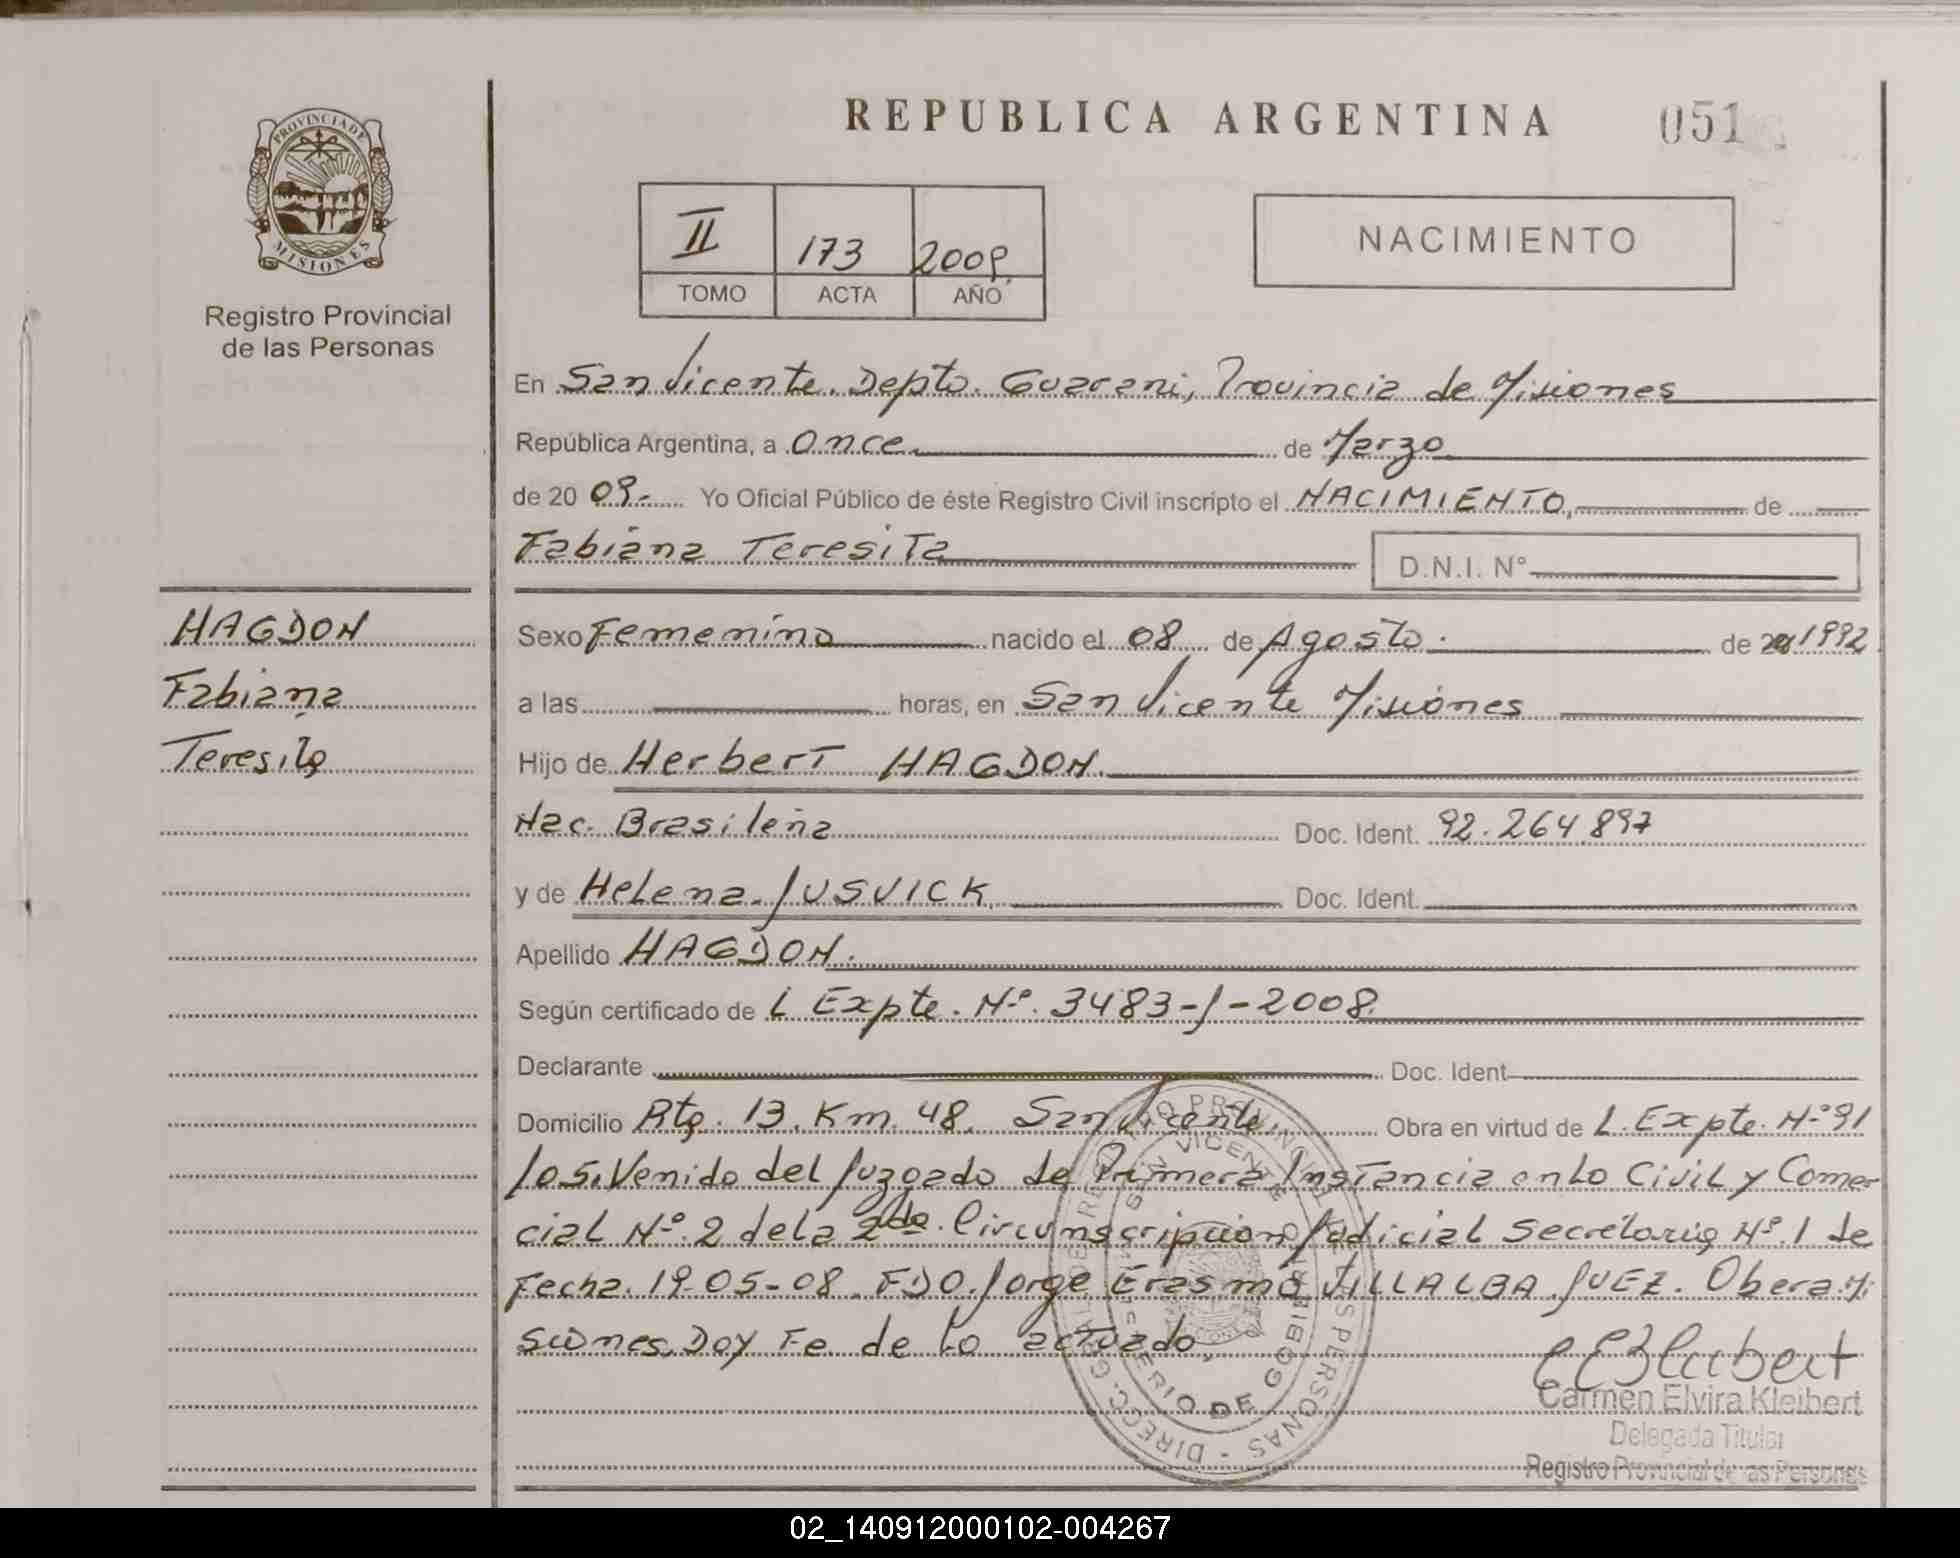 REPUBLICA ARGENTINA
051
PROVINCIA DE
MISIONES
Registro Provincial
de las Personas
II 173 2009
TOMO ACTA AÑO
NACIMIENTO
En San Vicente. Depto. Guarani, Provincia de Misiones
República Argentina, a Once de Marzo
de 20 09.- Yo Oficial Público de éste Registro Civil inscripto el NACIMIENTO, de
Fabiana Teresita D.N.I. N°
HAGDON
Fabiana
Teresita
Sexo Femenino nacido el 08 de Agosto. de 1992
a las horas, en San Vicente Misiones
Hijo de Herbert HAGDON.
Nac. Brasileña Doc. Ident. 92.264.897
y de Helena JUSVICK. Doc. Ident.
Apellido HAGDON.
Según certificado de L Expte. Nº. 3483-J-2008.
Declarante Doc. Ident
Domicilio Rta. 13. Km. 48. San Vicente. Obra en virtud de L. Expte. Nº 91
/05. Venido del Juzgado de Primera Instancia en Lo Civil y Comer
cial Nº. 2 de la 2da. Circunscripcion Judicial Secretaria Nº. 1 de
Fecha. 19-05-08. FDO. Jorge Erasmo VILLALBA. JUEZ. Obera. Mi
siones. Doy Fe de lo actuado.
DIRECC. GRAL. DE REGISTRO PROVINCIAL DE LAS PERSONAS
SAN VICENTE
MINISTERIO DE GOBIERNO
Carmen Elvira Kleibert
Delegada Titular
Registro Provincial de las Personas
02_140912000102-004267